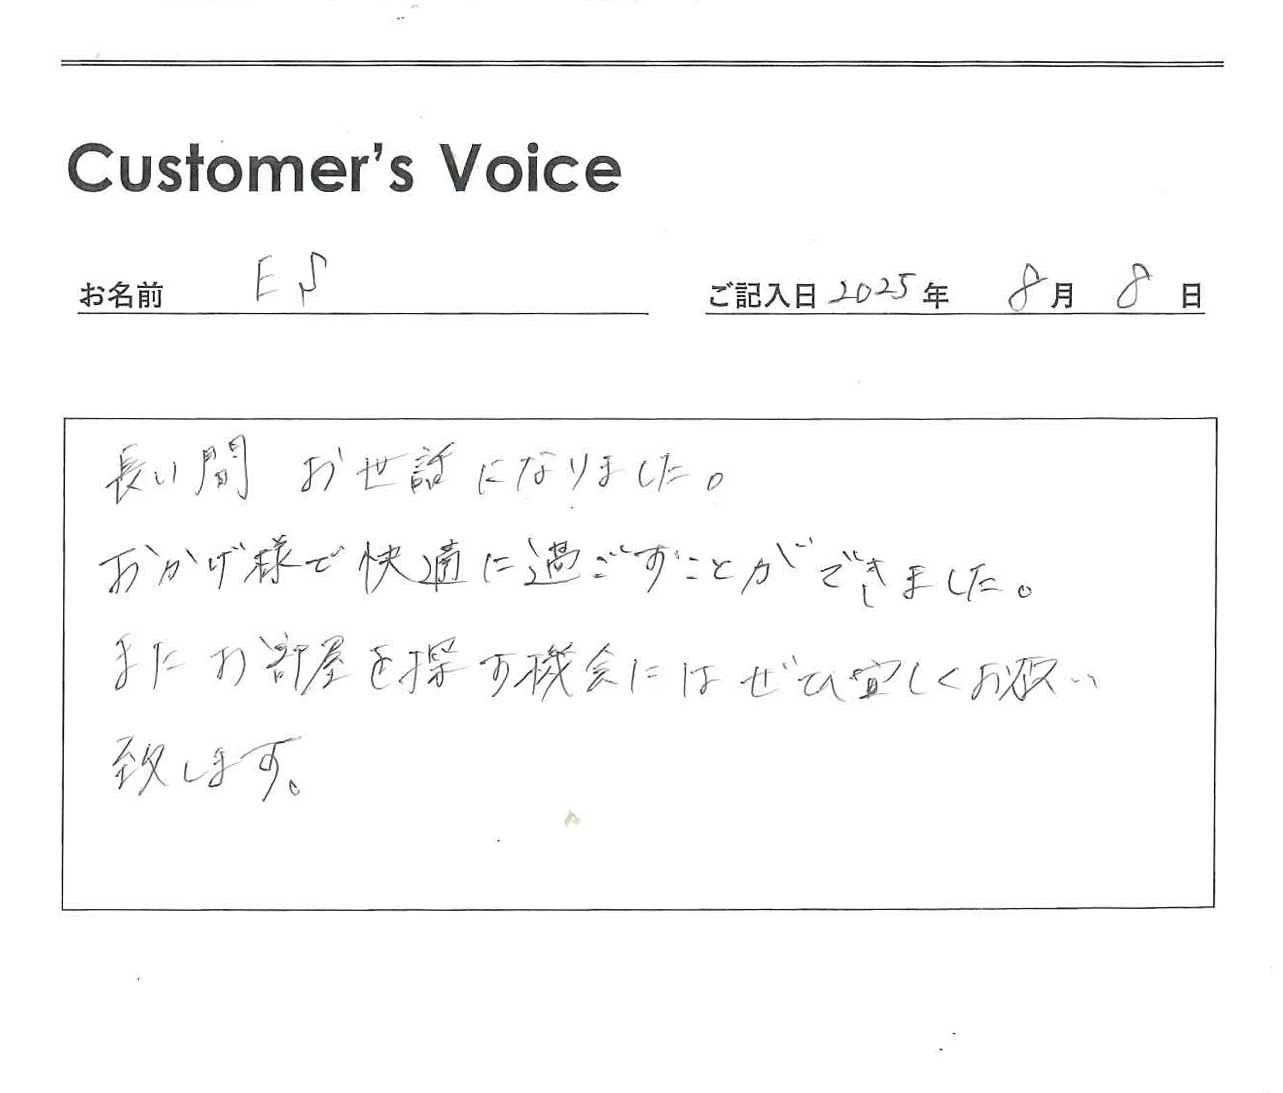 Customer's Voice
お名前
ご記入日 2025 年 8 月 8 日
長い間 お世話になりました。
おかげ様で快適に過ごすことができました。
またお部屋を探す機会にはぜひ宜しくお願い
致します。